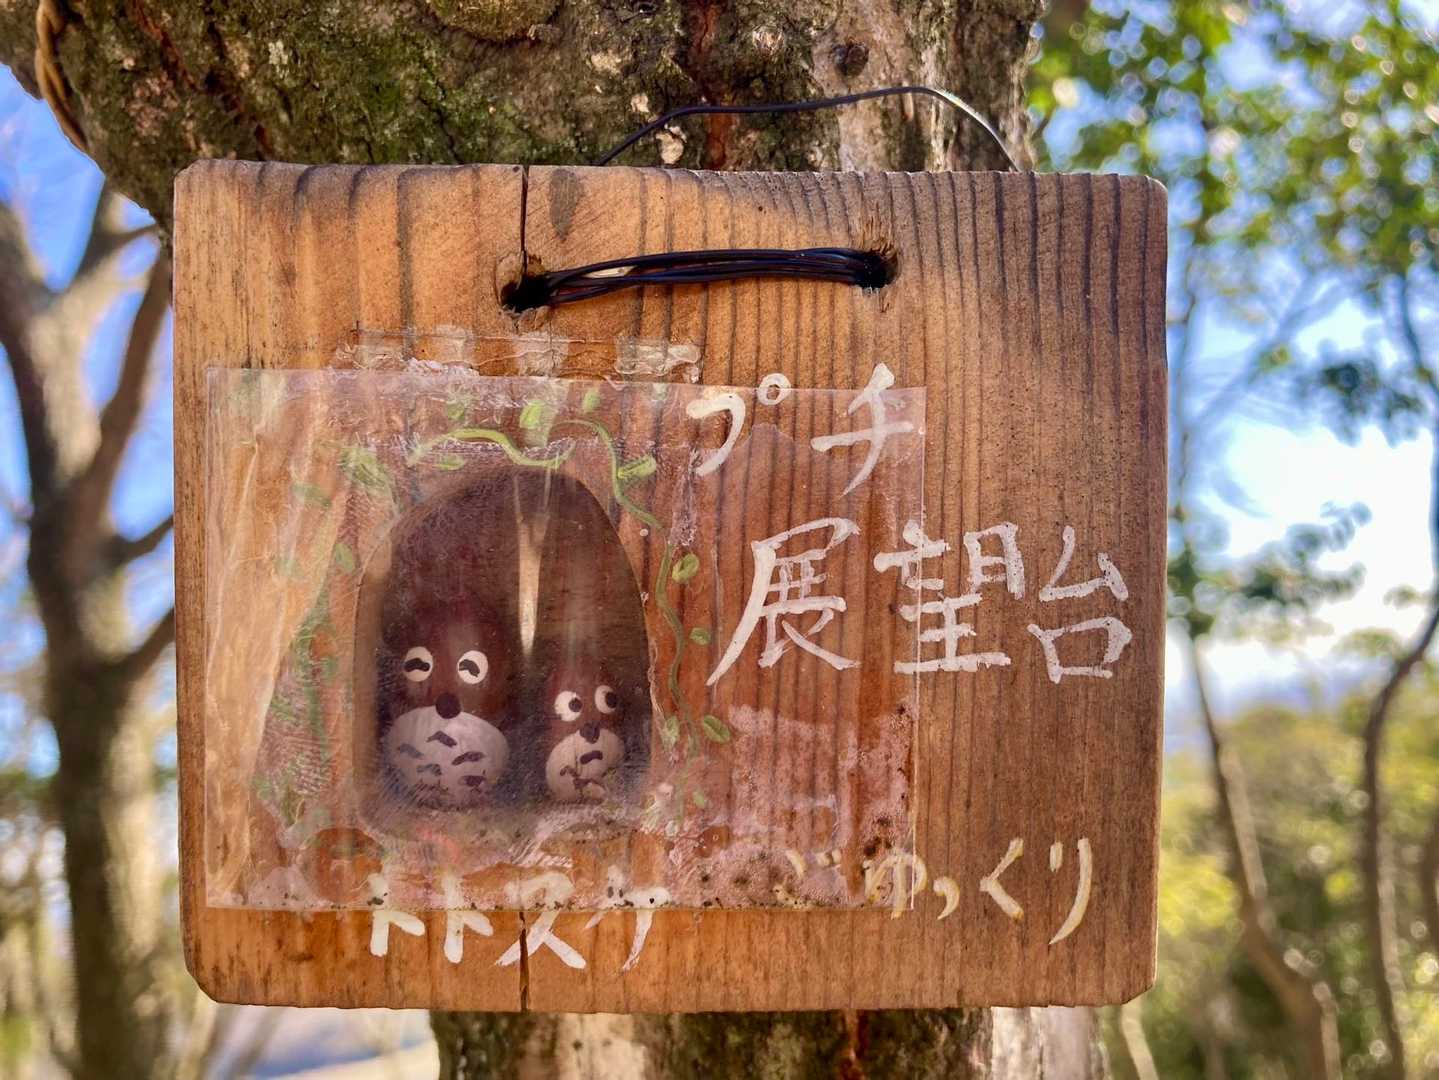 プチ
展望台
トトスケ
ごゆっくり